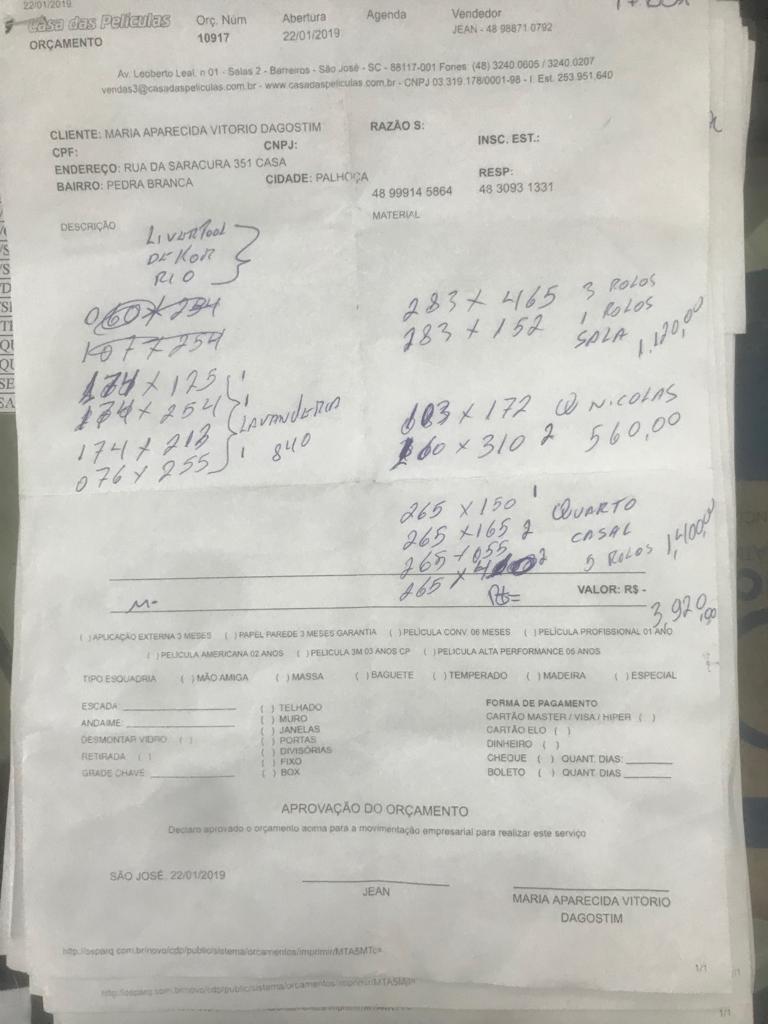 22/01/2019
Casa das Películas
ORÇAMENTO
Orç. Núm
10917
Abertura
22/01/2019
Agenda
Vendedor
JEAN - 48 98871 0792
Av. Leoberto Leal, n 01 - Salas 2 - Barreiros - São José - SC - 88117-001 Fones: (48) 3240.0605 / 3240.0207
vendas3@casadaspeliculas.com.br - www.casadaspeliculas.com.br - CNPJ 03.319.178/0001-98 - I. Est. 253.951.640
CLIENTE: MARIA APARECIDA VITORIO DAGOSTIM
RAZÃO S:
CPF:
CNPJ:
INSC. EST.:
ENDEREÇO: RUA DA SARACURA 351 CASA
BAIRRO: PEDRA BRANCA
CIDADE: PALHOÇA
RESP:
48 99914 5864
48 3093 1331
DESCRIÇÃO
MATERIAL
LIVERPOOL
DEKOR
RIO
060 x 254
107 x 254
174 x 125 1
174 x 254 1
174 x 213 LAVANDERIA
076 x 255 1 840
283 x 465 3 ROLOS
283 x 152 1 ROLOS
SALA 1.120,00
x 172 NICOLAS
x 310 2 560,00
265 x 150 1 QUARTO
265 x 165 2 CASAL
265 x 055 5 ROLOS 1,400,00
265 x
VALOR: R$ -
3,920,00
( ) APLICAÇÃO EXTERNA 3 MESES ( ) PAPEL PAREDE 3 MESES GARANTIA ( ) PELÍCULA CONV. 06 MESES ( ) PELÍCULA PROFISSIONAL 01 ANO
( ) PELICULA AMERICANA 02 ANOS ( ) PELICULA 3M 03 ANOS CP ( ) PELICULA ALTA PERFORMANCE 05 ANOS
TIPO ESQUADRIA ( ) MÃO AMIGA ( ) MASSA ( ) BAGUETE ( ) TEMPERADO ( ) MADEIRA ( ) ESPECIAL
ESCADA:
ANDAIME:
DESMONTAR VIDRO ( )
RETIRADA ( )
GRADE CHAVE
( ) TELHADO
( ) MURO
( ) JANELAS
( ) PORTAS
( ) DIVISÓRIAS
( ) FIXO
( ) BOX
FORMA DE PAGAMENTO
CARTÃO MASTER / VISA / HIPER ( )
CARTÃO ELO ( )
DINHEIRO ( )
CHEQUE ( ) QUANT. DIAS:
BOLETO ( ) QUANT. DIAS
APROVAÇÃO DO ORÇAMENTO
Declaro aprovado o orçamento acima para a movimentação empresarial para realizar este serviço
SÃO JOSÉ, 22/01/2019
JEAN
MARIA APARECIDA VITORIO
DAGOSTIM
http://osparq.com.br/novo/cdp/public/sistema/orcamentos/imprimir/MTA5MTc=
1/1
1/1